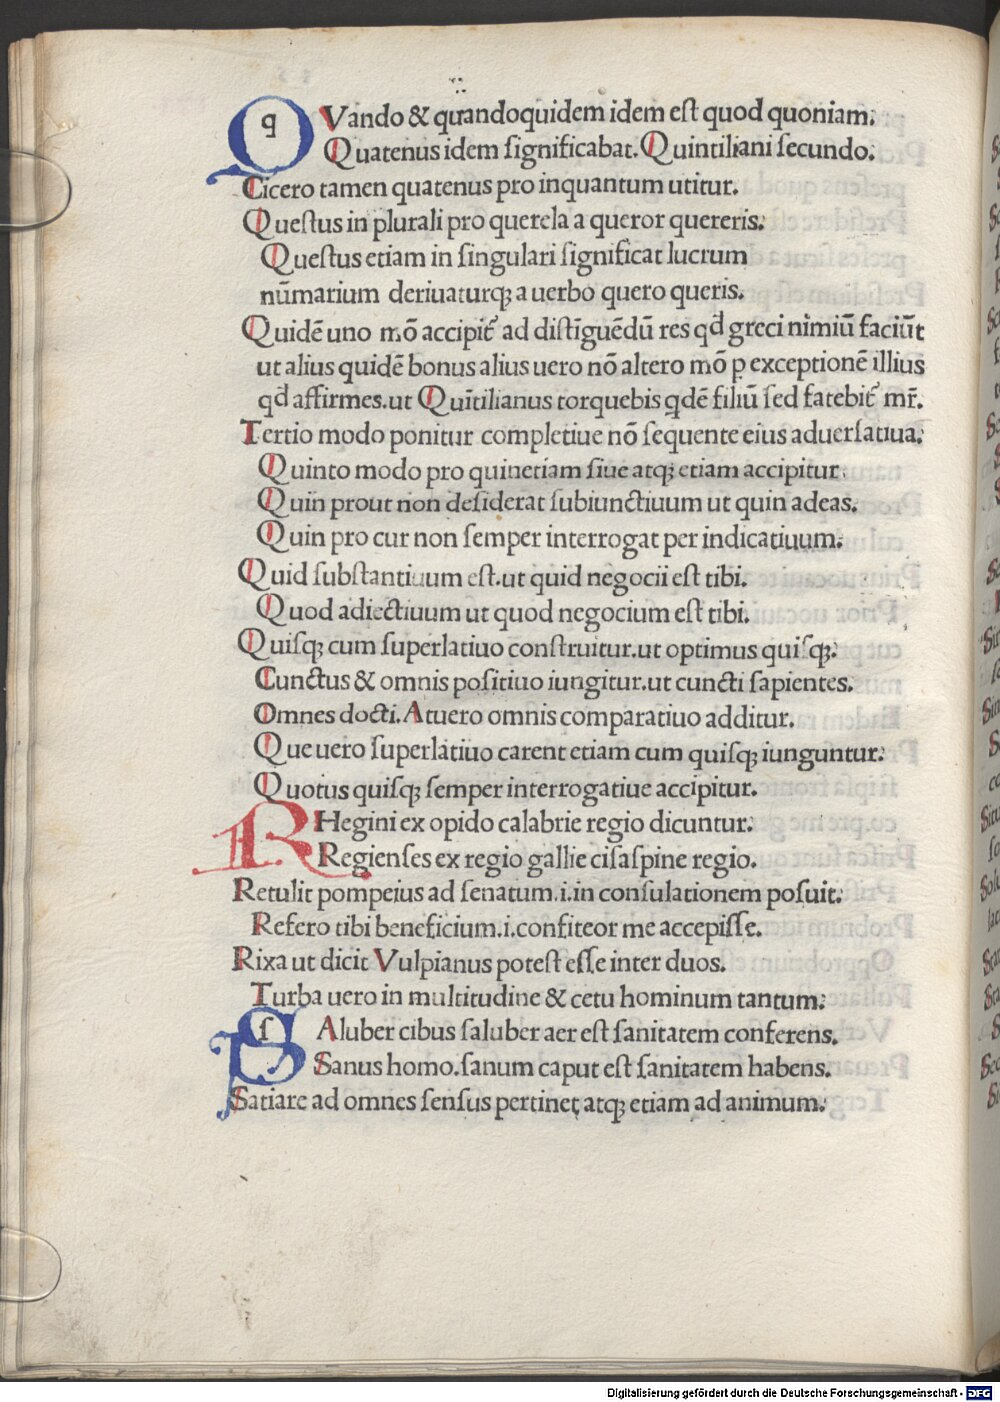 QVando & quandoquidem idem eſt quod quoniam.
Quatenus idem ſignificabat. Quintiliani ſecundo.
Cicero tamen quatenus pro inquantum utitur.
Queſtus in plurali pro querela a queror quereris.
Queſtus etiam in ſingulari ſignificat lucrum
nūmarium deriuaturqꝫ a uerbo quero queris.
Quidē uno mō accipit᷑ ad diſtīguēdū res qd̄ greci nimiū faciūt
ut alius quidē bonus alius uero nō altero mō ꝑ exceptionē illius
qd̄ affirmes.ut Quītilianus torquebis qdē filiū ſed fatebit᷑ mr̄.
Tertio modo ponitur completiue nō ſequente eius aduerſatiua.
Quinto modo pro quinetiam ſiue atqꝫ etiam accipitur.
Quin prout non deſiderat ſubiunctiuum ut quin adeas.
Quin pro cur non ſemper interrogat per indicatiuum.
Quid ſubſtantiuum eſt.ut quid negocii eſt tibi.
Quod adiectiuum ut quod negocium eſt tibi.
Quiſqꝫ cum ſuperlatiuo conſtruitur.ut optimus quiſqꝫ.
Cunctus & omnis poſitiuo iungitur.ut cuncti ſapientes.
Omnes docti. Atuero omnis comparatiuo additur.
Que uero ſuperlatiuo carent etiam cum quiſqꝫ iunguntur.
Quotus quiſqꝫ ſemper interrogatiue accipitur.
RHegini ex opido calabrie regio dicuntur.
Regienſes ex regio gallie ciſaſpine regio.
Retulit pompeius ad ſenatum.i.in conſulationem poſuit.
Refero tibi beneficium.i.confiteor me accepiſſe.
Rixa ut dicit Vulpianus poteſt eſſe inter duos.
Turba uero in multitudine & cetu hominum tantum.
SAluber cibus ſaluber aer eſt ſanitatem conferens.
Sanus homo.ſanum caput eſt ſanitatem habens.
Satiare ad omnes ſenſus pertinet atqꝫ etiam ad animum.
Digitalisierung gefördert durch die Deutsche Forschungsgemeinschaft - DFG